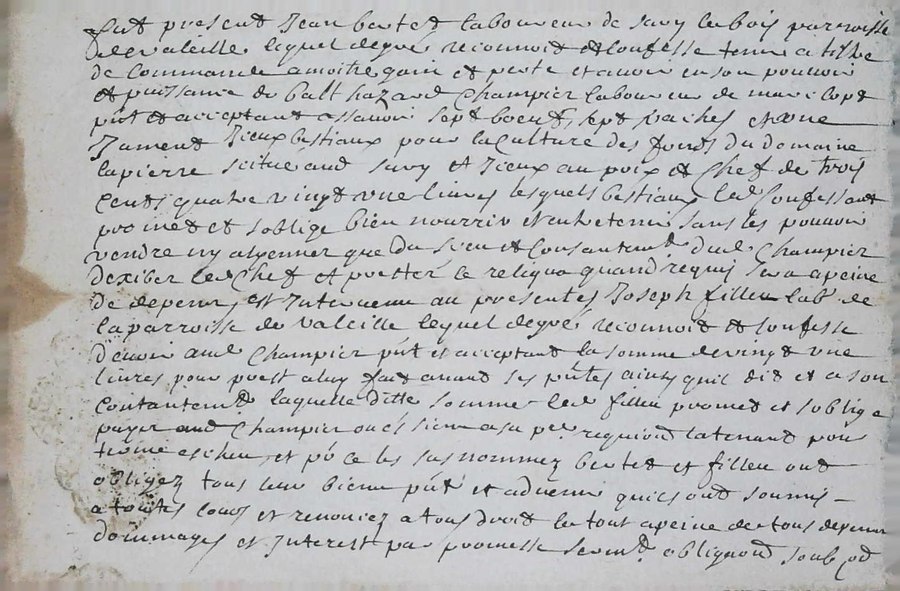 fut present Jean bertet laboureur de savy le bois parroisse
de valeille lequel degré reconnoit et confesse tenir a tiltre
de commande a moitié gain et perte et avoir en son pouvoir
et puissance de balthazard Champier laboureur de marclopt
pnt et acceptant assavoir sept boeufs, sept vaches et une
Jument Iceux bestiaux pour la culture des fonds du domaine
lapierre scitue aud savy et Iceux au poix et Chef de trois
Cents quatre vingt une livres lesquels bestiaux led Confessant
promet et soblige bien nourrir et entretenir sans les pouvoir
vendre ny alyenner que du sceu et consantemt dud Champier
dexiber led Chef et porter le reliqua quand requis sera a peine
de depens, est Intervenu au presentes Joseph filleu labr de
la parroisse de valeille lequel degré reconnoit et confesse
devoir aud Champier pnt et acceptant la somme de vingt une
livres pour prest a luy fait avant ses pntes ainsy quil dit et a son
contantemt laquelle ditte somme led filleu promet et soblige
payer aud Champier ou es siens a sa pre requision la tenant pour
terme escheu et po ce les susnommez bertet et filleu ont
obligez tous leur biens pnt et advenir quils ont soumis
a touttes cours et renoncez a tous droit le tout a peine de tous depens
dommages et Interest par promesse sermt obligaon soub con